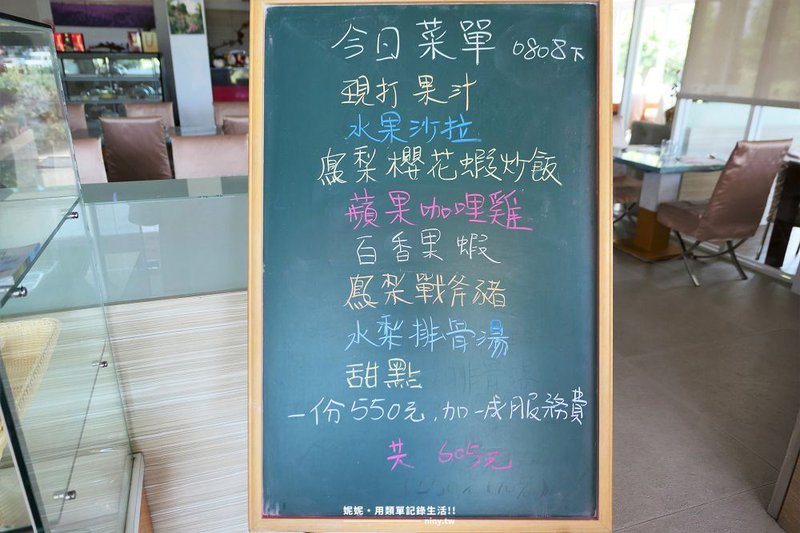 今日菜單 0808下
現打果汁
水果沙拉
鳳梨櫻花蝦炒飯
蘋果咖哩雞
百香果蝦
鳳梨戰斧豬
水梨排骨湯
甜點
一份550元,加一成服務費
共 605元
妮妮。用類單記錄生活!!
niny.tw